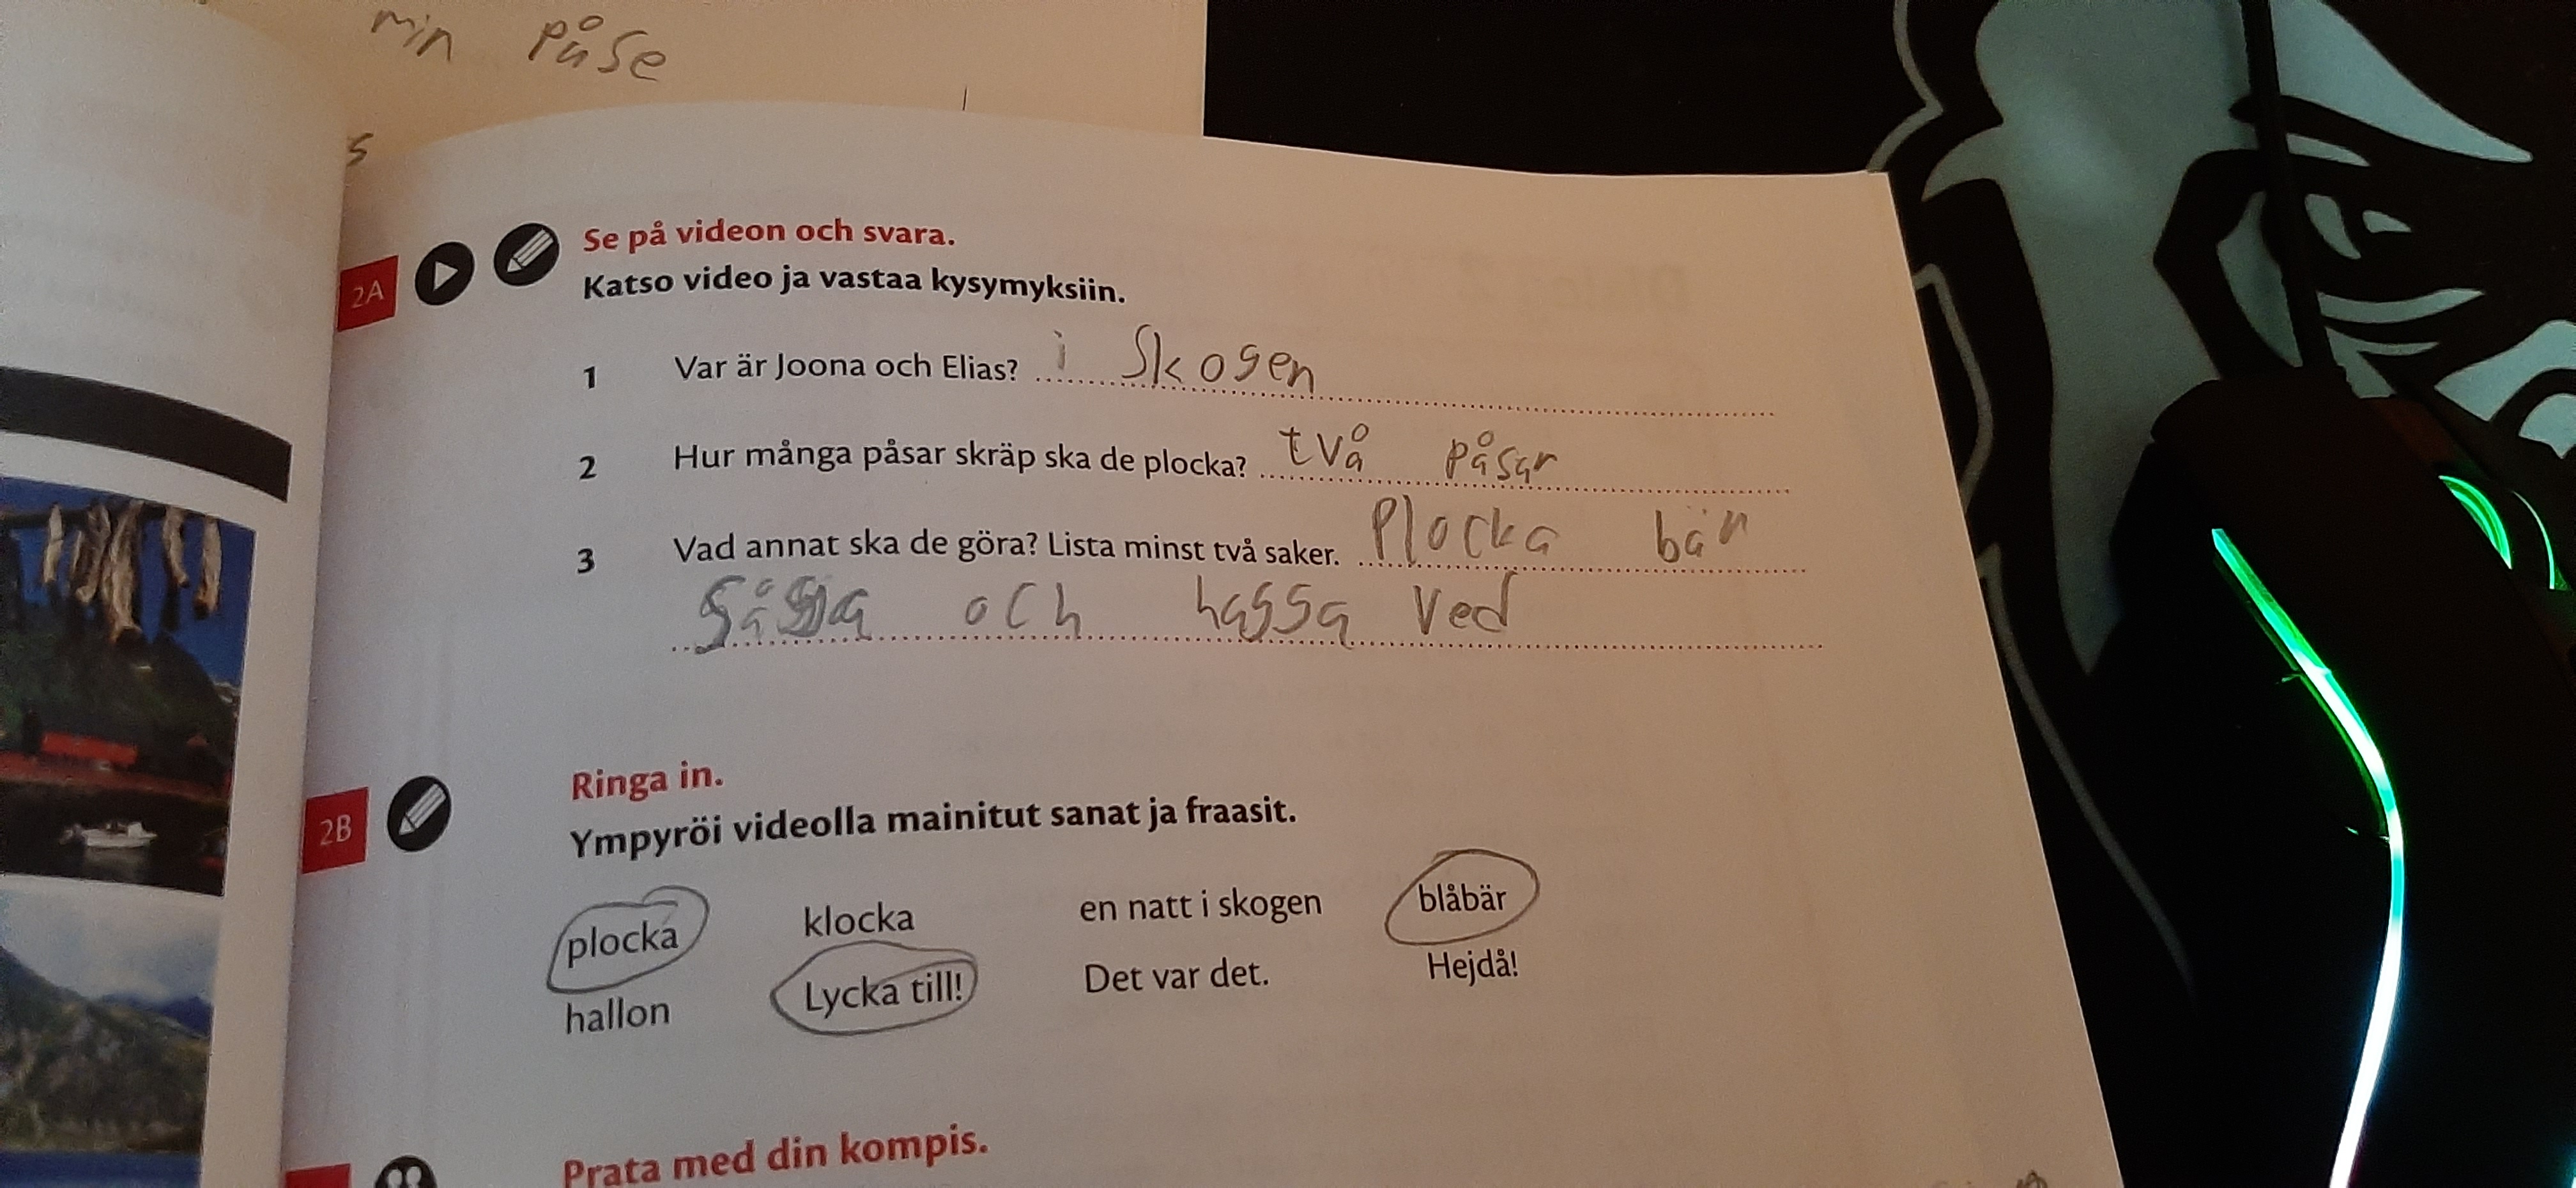 min påse
s
2A
Se på videon och svara.
Katso video ja vastaa kysymyksiin.
1 Var är Joona och Elias? i Skogen
2 Hur många påsar skräp ska de plocka? två påsar
3 Vad annat ska de göra? Lista minst två saker. Plocka bär
och hassa ved
2B
Ringa in.
Ympyröi videolla mainitut sanat ja fraasit.
plocka klocka en natt i skogen blåbär
hallon Lycka till! Det var det. Hejdå!
Prata med din kompis.